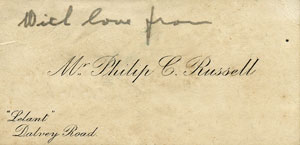 With love from
Mr Philip C. Russell
"Lelant"
Dalvey Road.